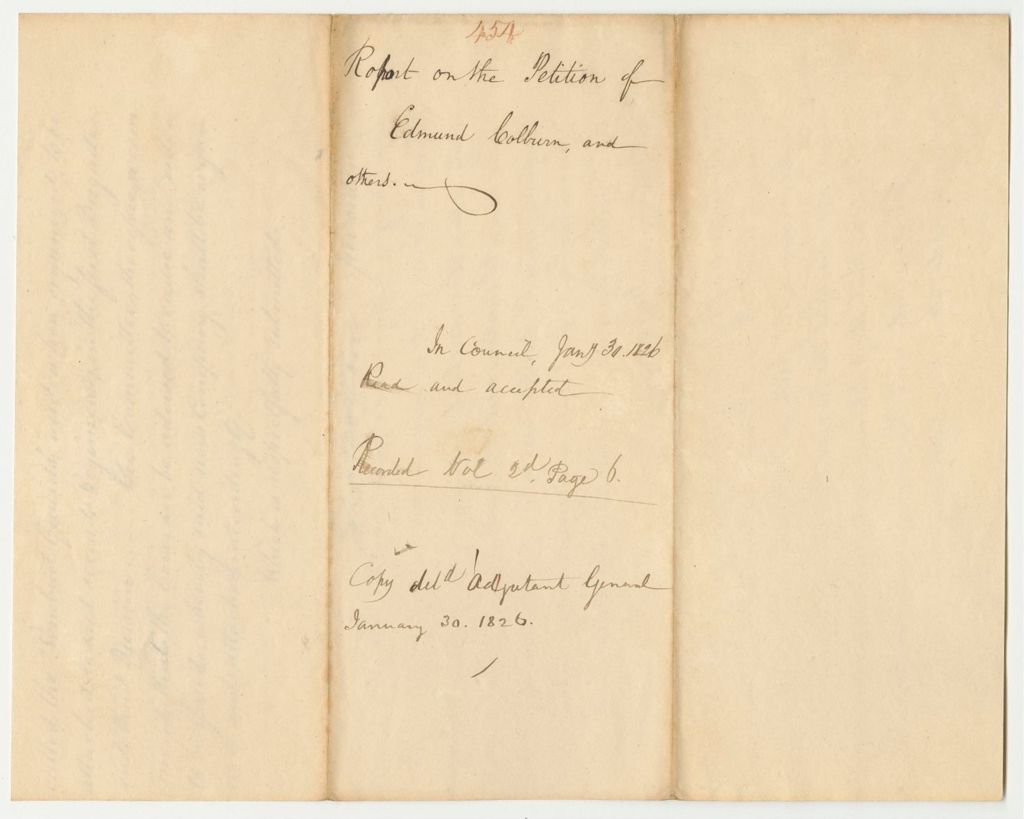 454
Report on the Petition of
Edmund Colburn, and
others.
In Council, Jany 30. 1826
Read and accepted
Recorded Vol 2d. Page 6.
Copy deld Adjutant General
January 30. 1826.